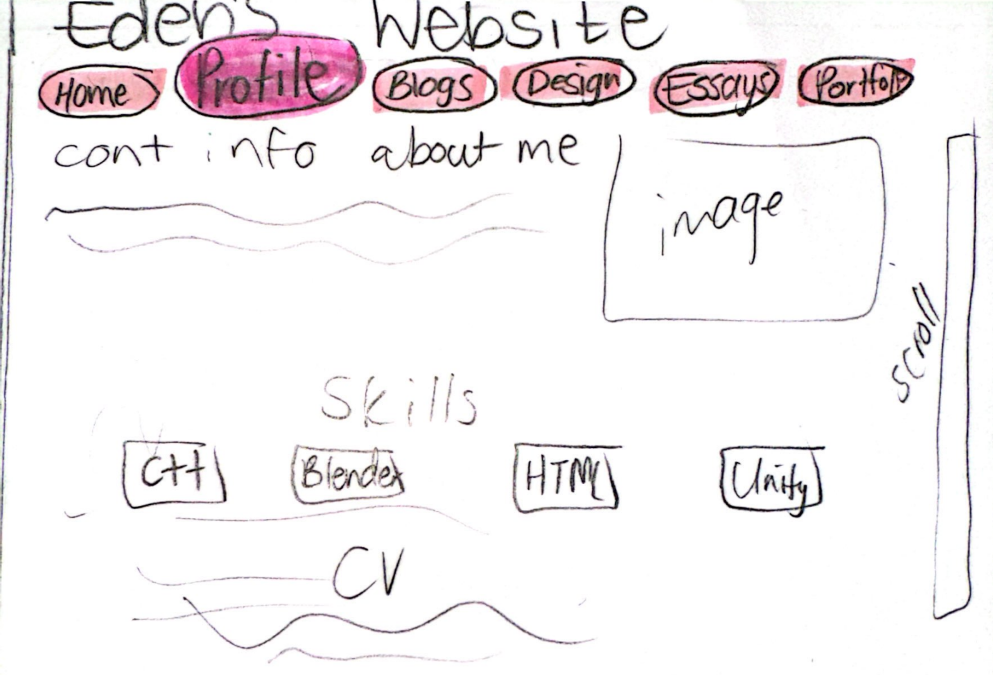 Eden's Website
Home Profile Blogs Design Essays Portfolio
cont info about me
image
scroll
Skills
C++ Blender HTML Unity
CV